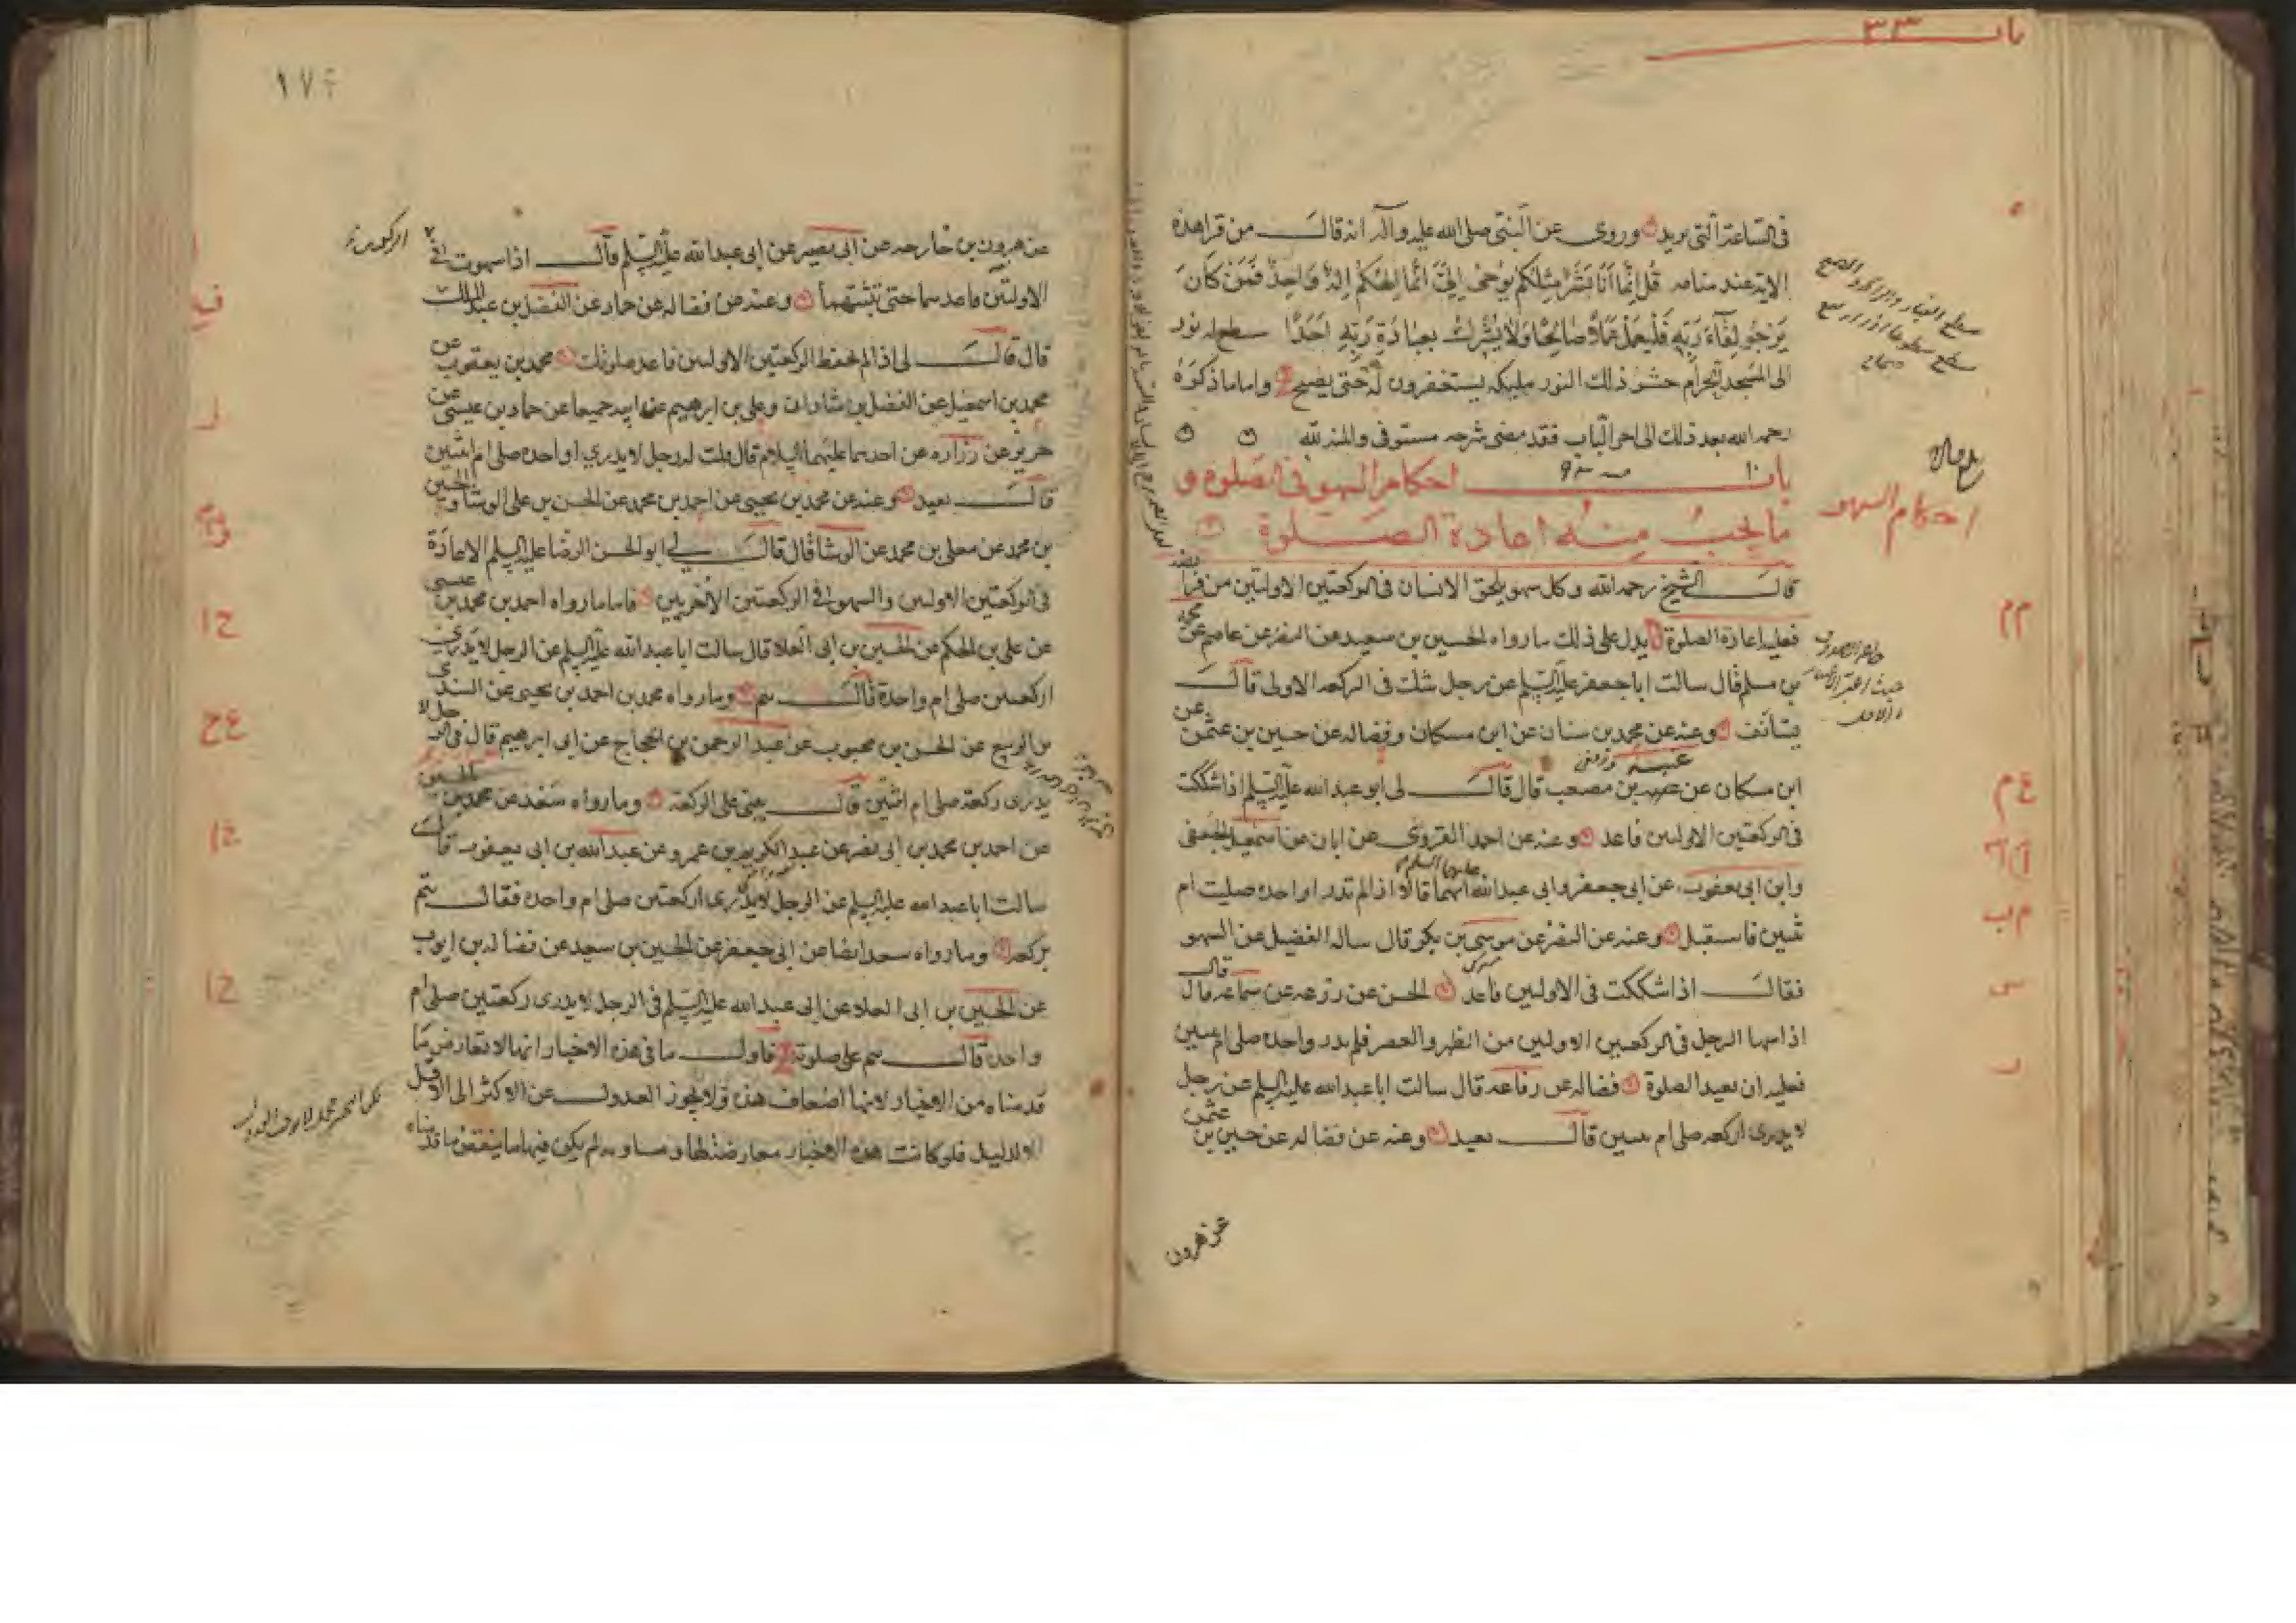 باب ٣٣
فى الساعة التى يريد وروى عن النبى صلى الله عليه وآله انه قال من قرا هذه
الاية عند منامه قُل إِنَّمَا أَنَا بَشَرٌ مِثْلُكُمْ يُوحَى إِلَيَّ أَنَّمَا إِلَهُكُمْ إِلَهٌ وَاحِدٌ فَمَنْ كَانَ
يَرْجُو لِقَاءَ رَبِّهِ فَلْيَعْمَلْ عَمَلًا صَالِحًا وَلَا يُشْرِكْ بِعِبَادَةِ رَبِّهِ أَحَدًا سطع له نور
الى المسجد الحرام حشو ذلك النور مليكه يستغفرون له حتى يصبح واما ما ذكره
رحمه الله بعد ذلك الى اخر الباب فقد مضى شرحه مستوفى والمنة لله
باب احكام السهو فى الصلوة و
ما يجب منه اعادة الصلوة
احكام السهو
قال الشيخ رحمه الله وكل سهو يلحق الانسان فى الركعتين الاولتين من فرا يضه
فعليه اعادة الصلوة يدل على ذلك ما رواه الحسين بن سعيد عن النضر عن عاصم عن محمد
بن مسلم قال سالت ابا جعفر عليه السلم عن رجل شك فى الركعه الاولى قال
يستانف وعنه عن محمد بن سنان عن ابن مسكان وفضاله عن حسين بن عثمن عن
ابن مسكان عن عنبسه بن مصعب قال قال لى ابو عبد الله عليه السلم اذا شككت
فى الركعتين الاولتين فاعد وعنه عن احمد القروى عن ابان عن اسمعيل الجعفى
وابن ابى يعفور عن ابى جعفر وابى عبد الله عليهما السلم انهما قالا اذا لم تدر اواحده صليت ام
ثنتين فاستقبل وعنه عن النضر عن موسى بن بكر قال ساله الفضيل عن السهو
فقال اذا شككت فى الاولتين فاعد الحسن عن زرعه عن سماعه قال قال
اذا سها الرجل فى الركعتين الاولتين من الظهر والعصر فلم يدر واحده صلى ام ثنتين
فعليه ان يعيد الصلوة فضاله عن رفاعه قال سالت ابا عبد الله عليه السلم عن رجل
لا يدرى اركعه صلى ام ثنتين قال يعيد وعنه عن فضاله عن حسين بن عثمن
عن هرون
١٧٤
عن هرون بن خارجه عن ابى بصير عن ابى عبد الله عليه السلم قال اذا سهوت فى
الاولتين فاعدهما حتى تثبتهما وعنه عن فضاله عن حماد عن الفضل بن عبد الملك
قال قال لى اذا لم تحفظ الركعتين الاولتين فاعد صلوتك محمد بن يعقوب عن
محمد بن اسمعيل عن الفضل بن شاذان وعلى بن ابرهيم عن ابيه جميعا عن حماد بن عيسى عن
حريز عن زراره عن احدهما عليهما السلام قال قلت له رجل لا يدرى اواحده صلى ام اثنتين
قال يعيد وعنه عن محمد بن يحيى عن احمد بن محمد عن الحسن بن على الوشا والحسين
بن محمد عن معلى بن محمد عن الوشا قال قال لى ابو الحسن الرضا عليه السلم الاعادة
فى الركعتين الاولتين والسهو فى الركعتين الاخريين فاما ما رواه احمد بن محمد بن عيسى
عن على بن الحكم عن الحسين بن ابى العلا قال سالت ابا عبد الله عليه السلم عن الرجل لا يدرى
اركعتين صلى ام واحدة قال يتم وما رواه محمد بن احمد بن يحيى عن السندى
بن الربيع عن الحسن بن محبوب عن عبد الرحمن بن الحجاج عن ابى ابرهيم قال فى الرجل لا
يدرى ركعة صلى ام اثنتين قال يبنى على الركعة وما رواه سعد عن محمد بن الحسين
عن احمد بن محمد بن ابى نصر عن عبد الكريم بن عمرو عن عبد الله بن ابى يعفور قال
سالت ابا عبد الله عليه السلم عن الرجل لا يدرى اركعتين صلى ام واحده فقال يتم
بركعه وما رواه سعد ايضا عن ابى جعفر عن الحسين بن سعيد عن فضاله بن ايوب
عن الحسين بن ابى العلا عن ابى عبد الله عليه السلم فى الرجل لا يدرى ركعتين صلى ام
واحدة قال يتم على صلوته فاول ما فى هذه الاخبار انها لا تعارض ما
قدمناه من الاخبار لانها اضعاف هذه ولا يجوز العدول عن الاكثر الى الاقل
الا لدليل فلو كانت هذه الاخبار معارضة لها ومساويه لم يكن فيها ما ينقض ما قدمناه